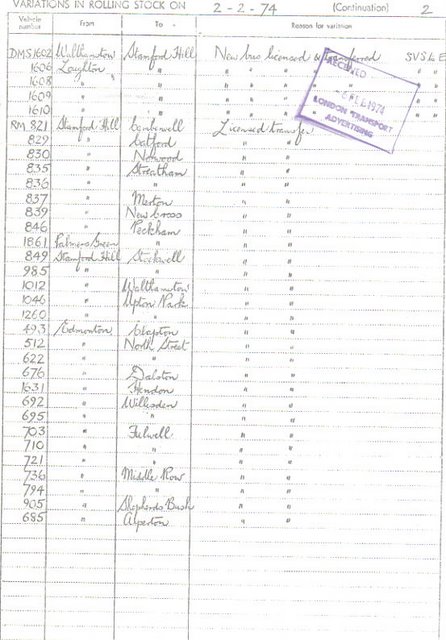 VARIATIONS IN ROLLING STOCK ON 2-2-74 (Continuation) 2
Vehicle number From To Reason for variation
DMS1602 Walthamstow Stamford Hill New bus licensed & transferred SVSLE
1606 Loughton " " " " " " " "
1608 " " " " " "
1609 " " " " "
1610 " " " " "
RECEIVED
FEB 1974
LONDON TRANSPORT
ADVERTISING
RM 821 Stamford Hill Camberwell Licensed transfer
829 " Catford " "
830 " Norwood " "
835 " Streatham " "
836 " " " "
837 " Merton " "
839 " New Cross " "
846 " Peckham " "
1861 Palmers Green " " "
849 Stamford Hill Stockwell " "
985 " " " "
1012 " Walthamstow " "
1046 " Upton Park " "
1260 " " " "
493 Edmonton Clapton " "
512 " North Street " "
622 " " " "
676 " Dalston " "
1631 " Hendon " "
692 " Willesden " "
695 " " " "
703 " Fulwell " "
710 " " " "
721 " " " "
736 " Middle Row " "
794 " " " "
905 " Shepherds Bush " "
685 " Alperton " "